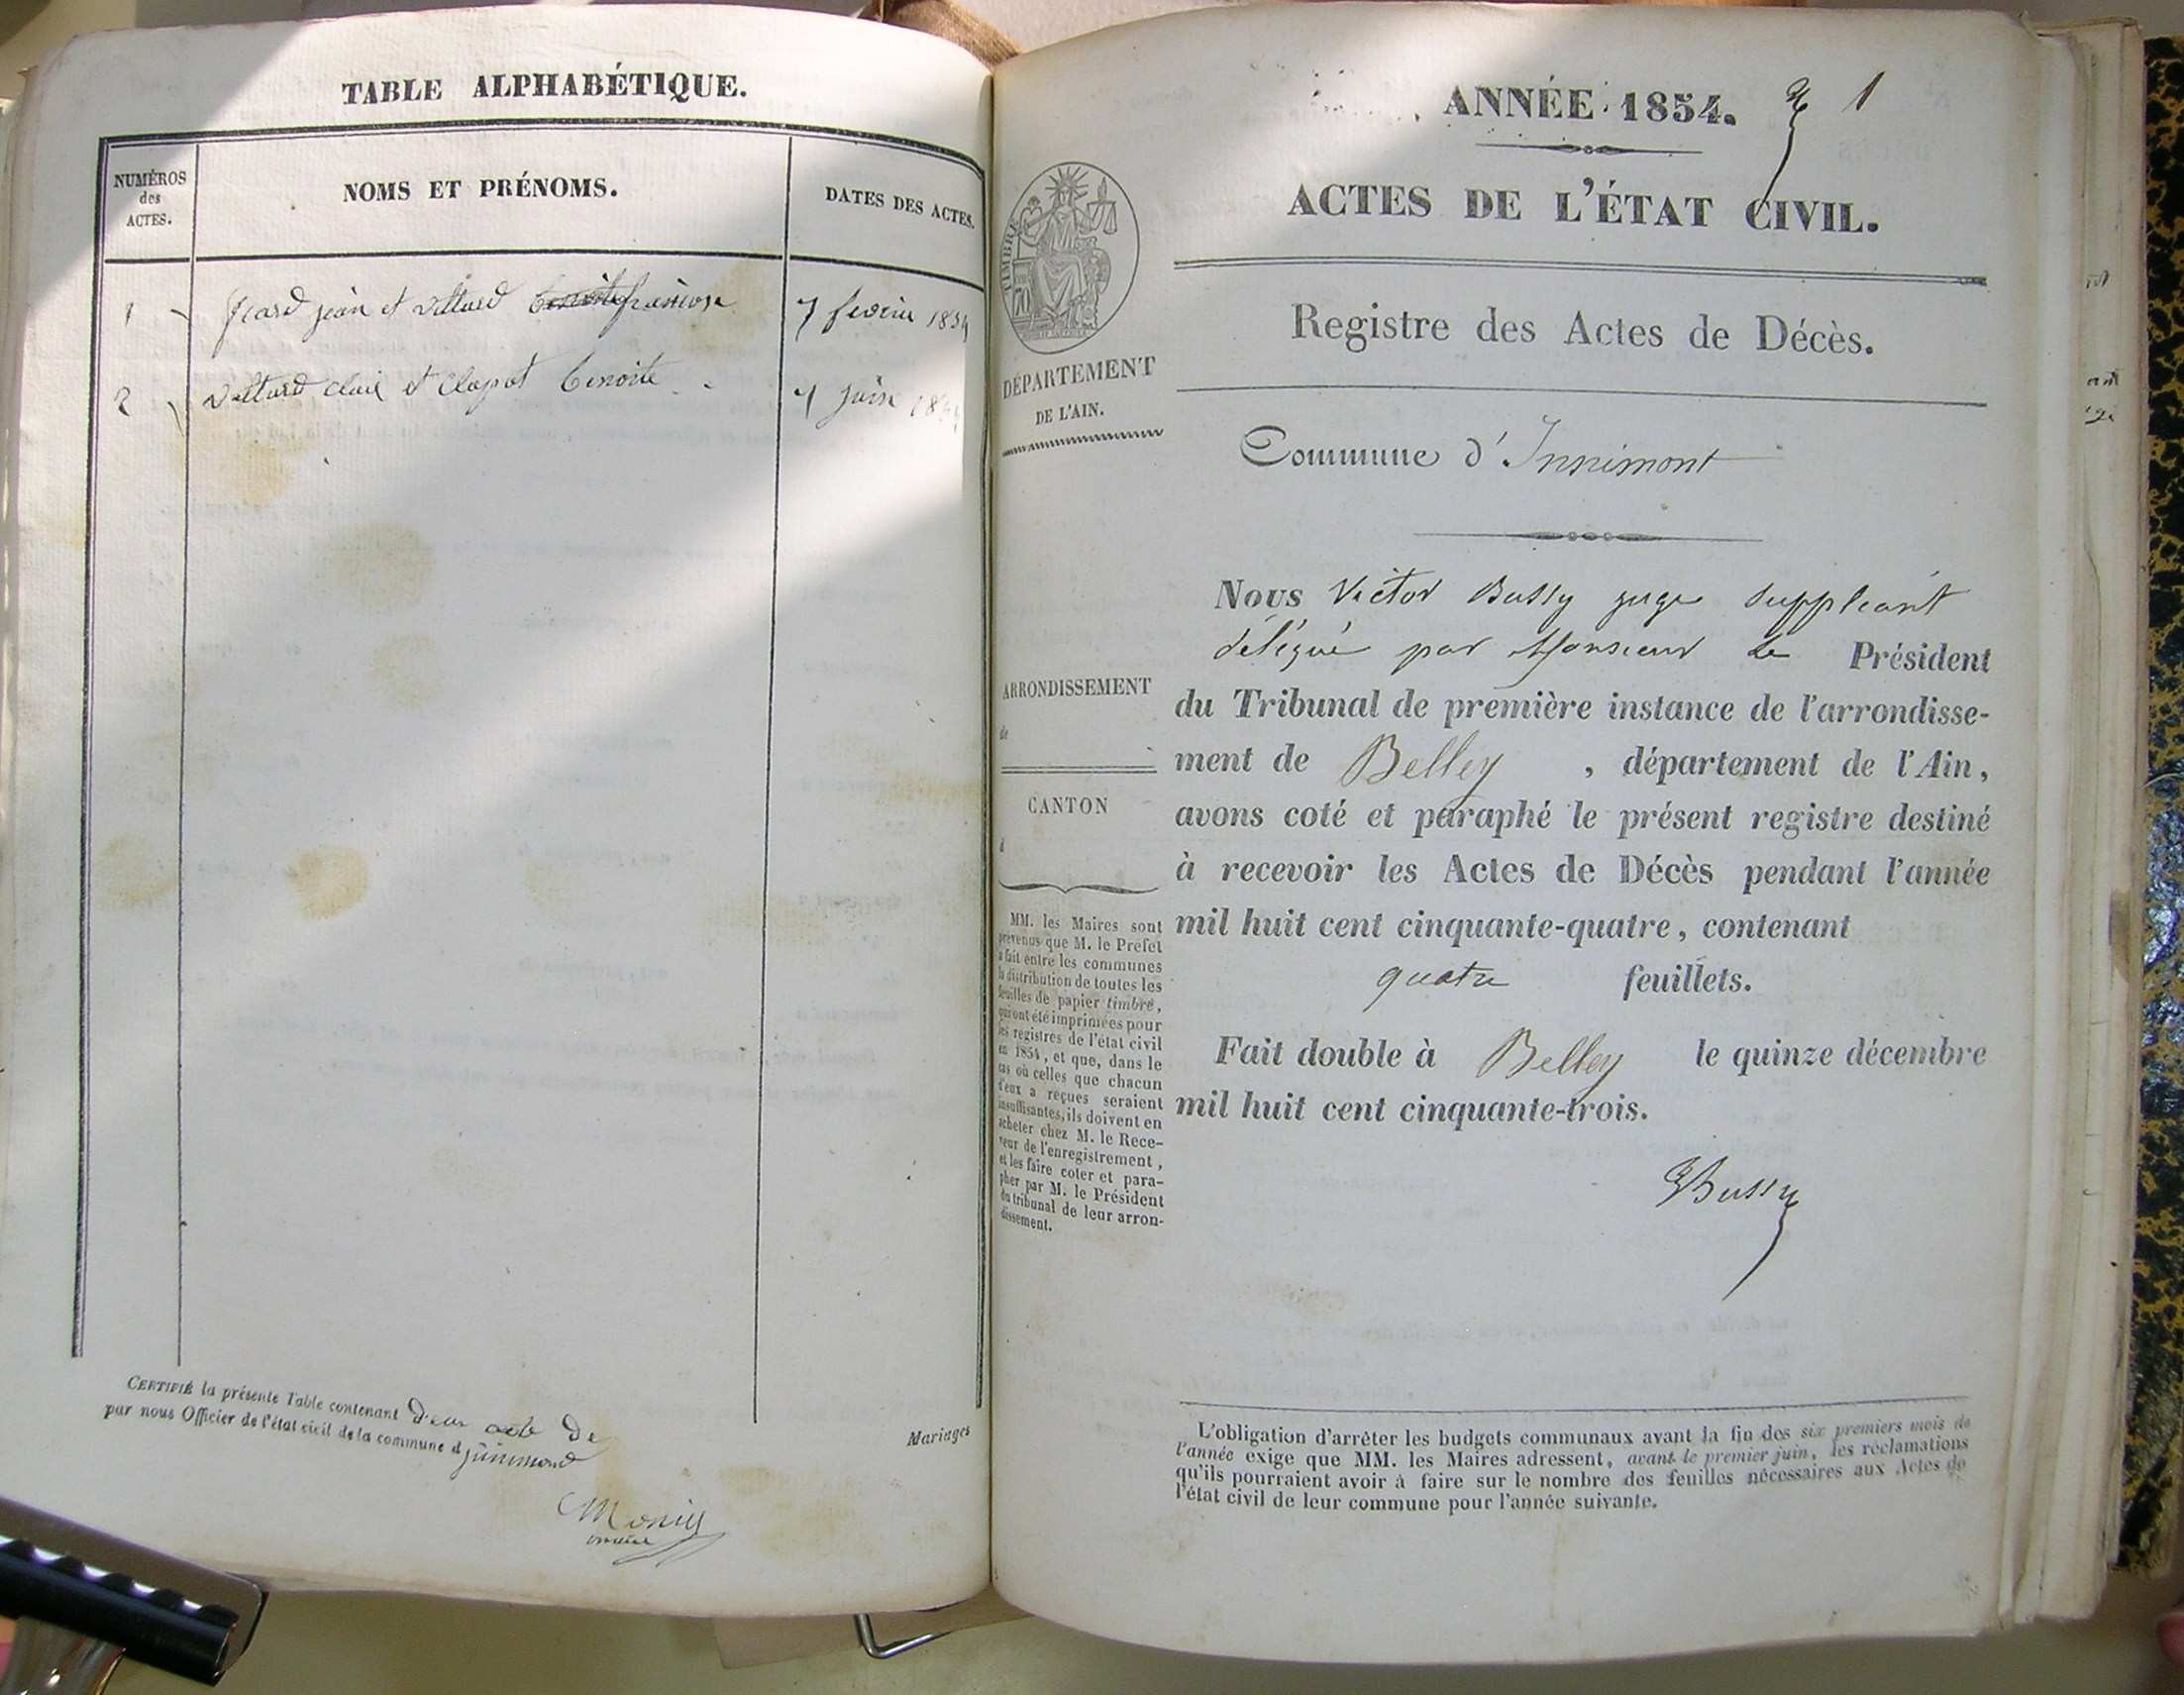 TABLE ALPHABÉTIQUE.
NUMÉROS
des
ACTES.
NOMS ET PRÉNOMS.
DATES DES ACTES.
1 jean et 7 fevrier 1854
2 et Benoite 7 juin
CERTIFIÉ la présente Table contenant deux acte De
par nous Officier de l'état civil de la commune d
Mariages
maire
ANNÉE 1854. 1
ACTES DE L'ÉTAT CIVIL.
Registre des Actes de Décès.
TIMBRE
70
DÉPARTEMENT
DE L'AIN.
Commune d'Innimont
ARRONDISSEMENT
de
CANTON
d
MM. les Maires sont
prévenus que M. le Préfet
a fait entre les communes
la distribution de toutes les
feuilles de papier timbré,
qui ont été imprimées pour
les registres de l'état civil
en 1854, et que, dans le
cas où celles que chacun
d'eux a reçues seraient
insuffisantes, ils doivent en
acheter chez M. le Rece-
veur de l'enregistrement,
et les faire coter et para-
pher par M. le Président
du tribunal de leur arron-
dissement.
Nous Victor Bussy juge suppléant
délégué par Monsieur le Président
du Tribunal de première instance de l'arrondisse-
ment de Belley , département de l'Ain,
avons coté et paraphé le présent registre destiné
à recevoir les Actes de Décès pendant l'année
mil huit cent cinquante-quatre, contenant
quatre feuillets.
Fait double à Belley le quinze décembre
mil huit cent cinquante-trois.
Bussy
L'obligation d'arrêter les budgets communaux avant la fin des six premiers mois de
l'année exige que MM. les Maires adressent, avant le premier juin, les réclamations
qu'ils pourraient avoir à faire sur le nombre des feuilles nécessaires aux Actes de
l'état civil de leur commune pour l'année suivante.